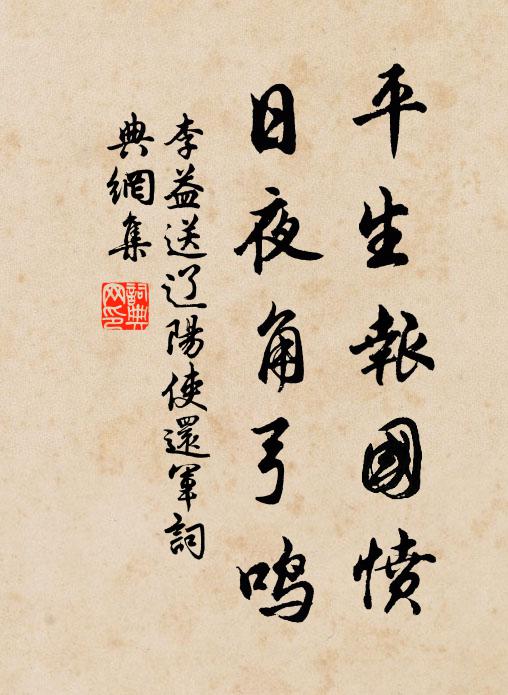 平生報國憤
日夜角弓鸣
李益送辽陽使還軍詞
典網集
詞典网印